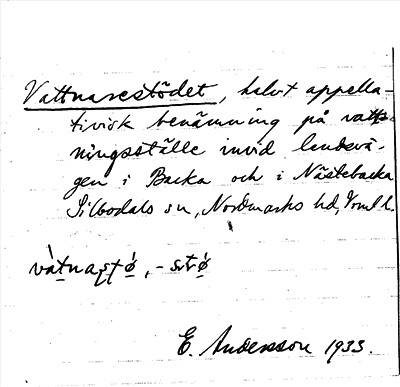 Vattnarestödet, halvt appella-
tivisk benämning på vatt-
ningsställe invid landsvä-
gen i Backa och i Nästebacka
Silbodals sn, Nordmarks hd, Vrml.
vàtnaʂtø̀, -stø̀
E. Andersson 1933.